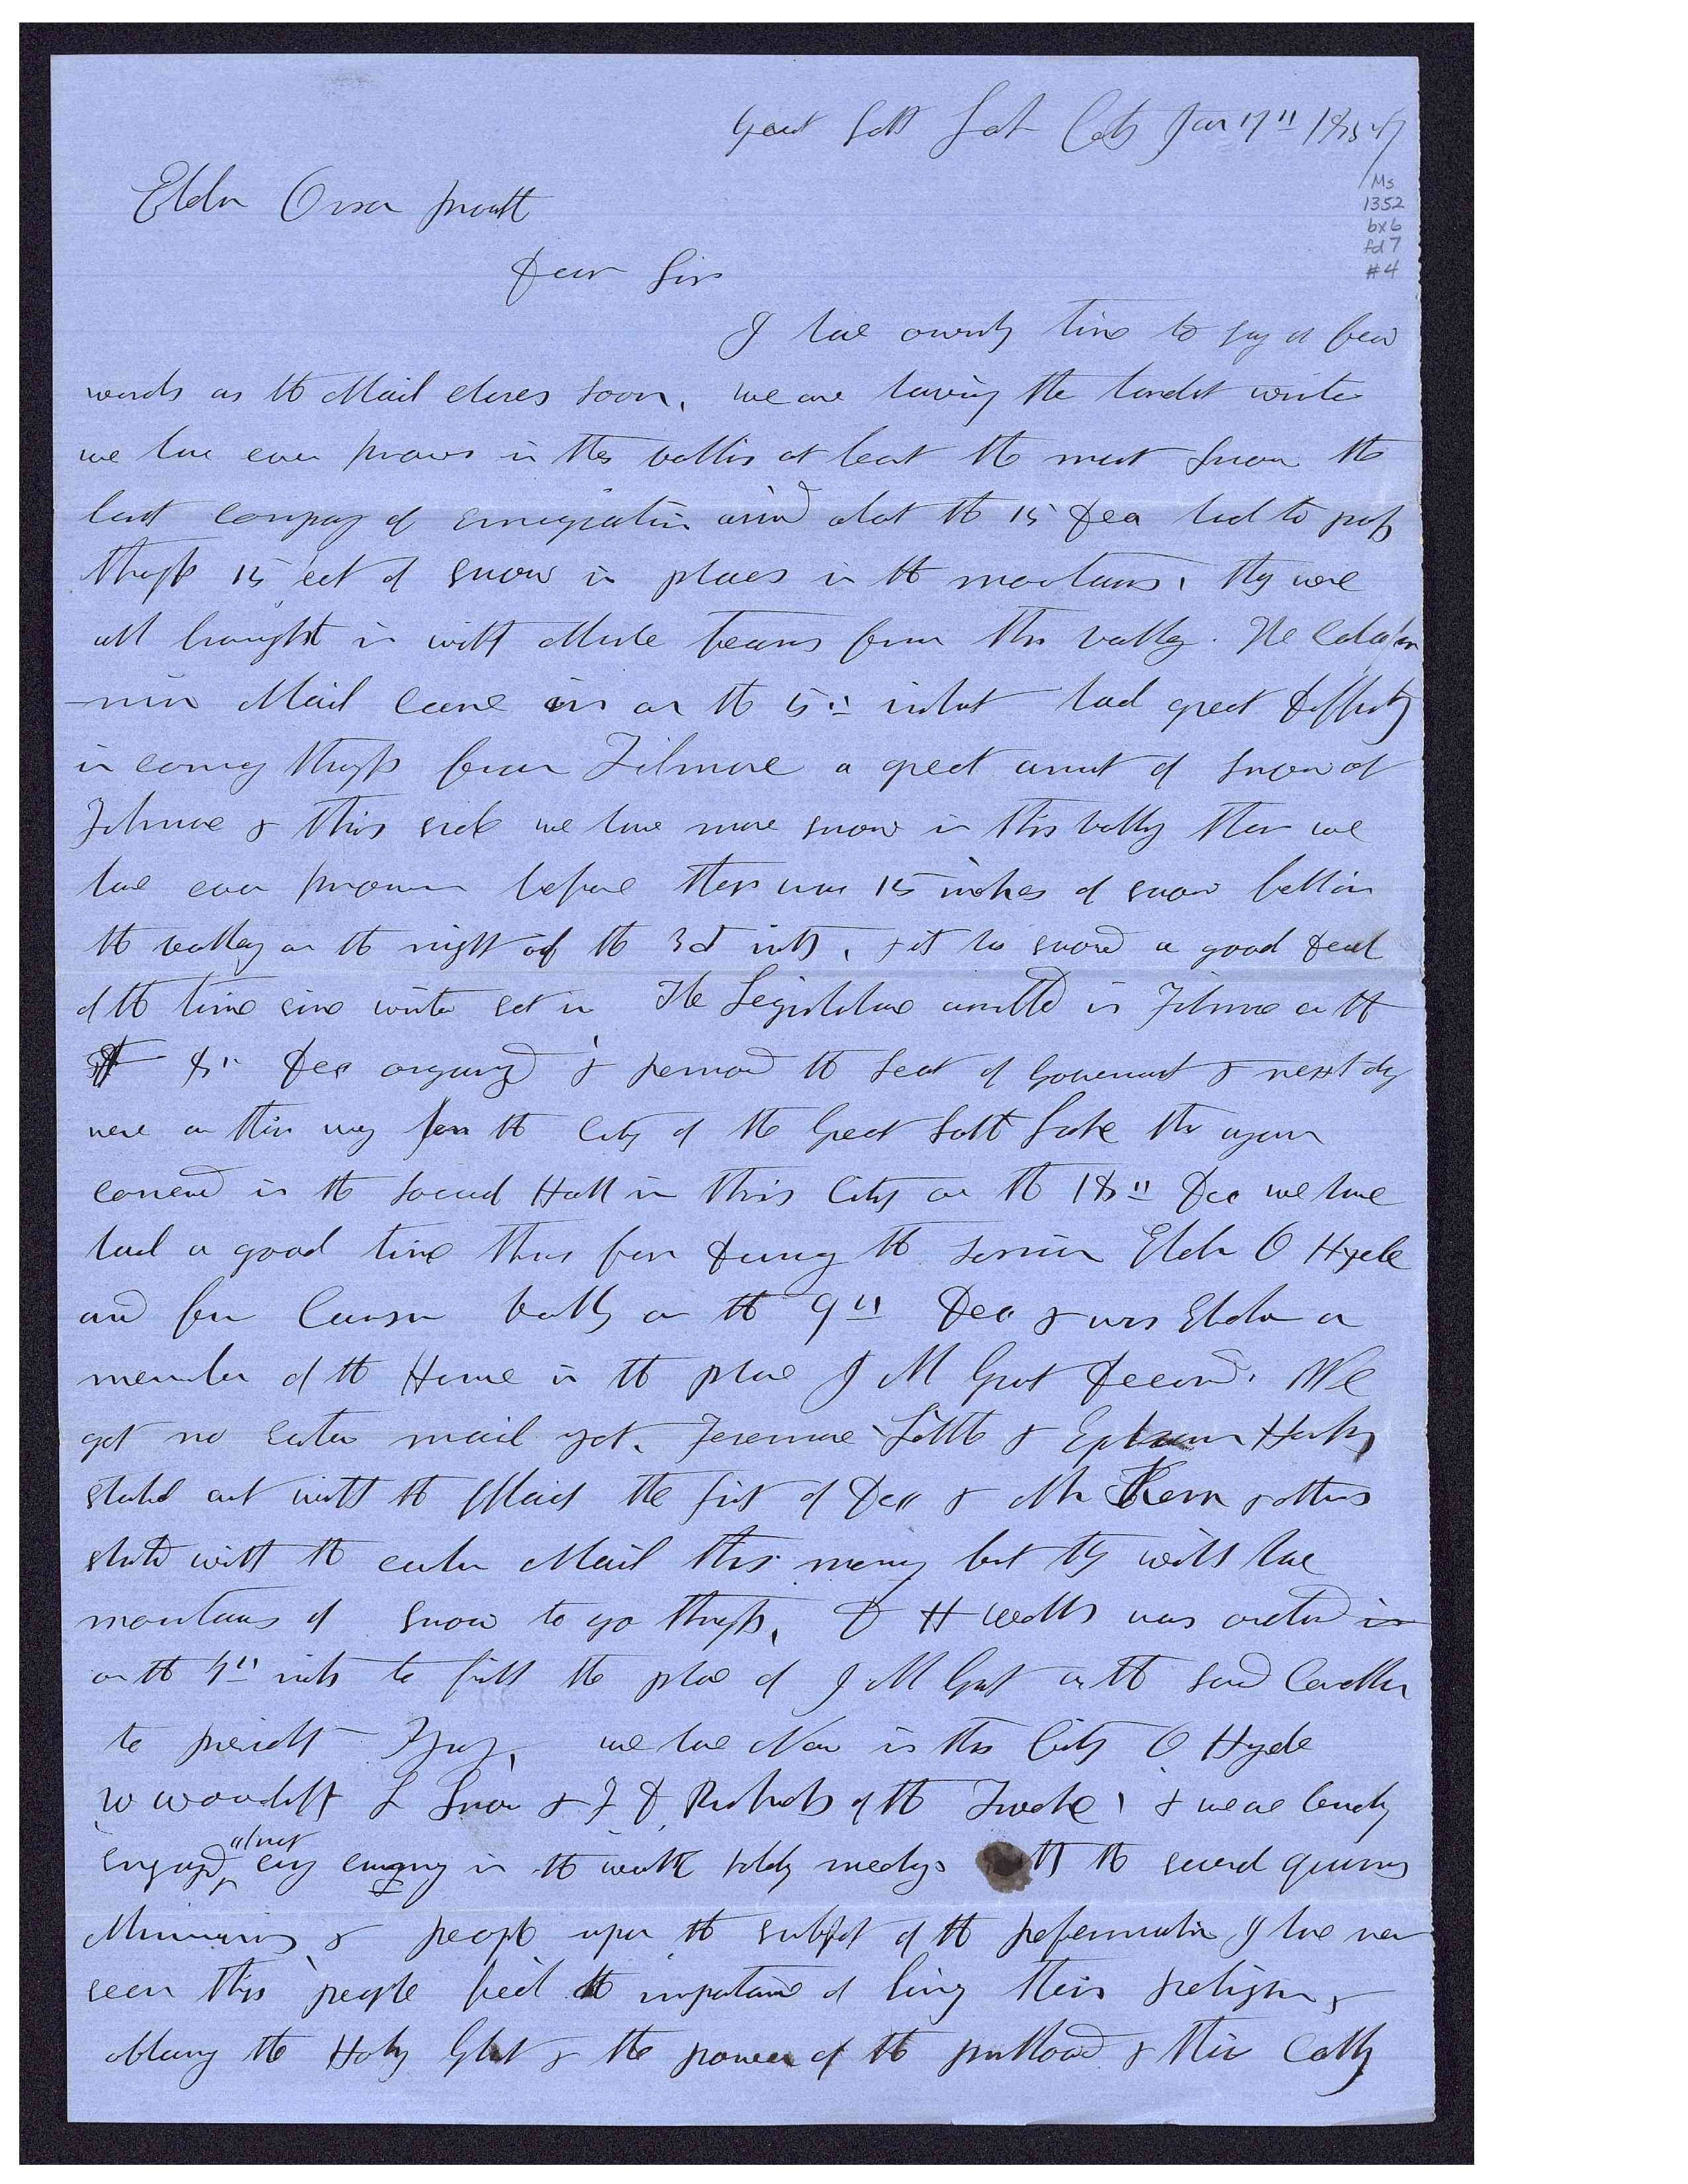 Great Salt Lake City Jan 7" 1857
Ms
1352
bx 6
fd 7
#4
Elder Orson Pratt
Dear Sir
I have ownly time to say a few
words as the Mail closes soon. we are having the hardest winter
we have ever known in these vallies at least the most snow the
last company of emigration arived about the 15 Dec had to pass
through 15 eet of snow in places in the mountains. they were
all brought in with Mule teams from this valley. The
Mail came in on the 5" instant had great difficulty
in coming through from Filmore a great amount of snow at
Filmore & this side we have more snow in this valley than we
have ever known before there was 15 inches of snow fell in
the valley on the night of the 3d inst. & it has snowed a good deal
of the time since winter set in The Legislature in Filmore on the
8" Dec organized & removed the seat of Government & next day
were on their way for the City of the Great Salt Lake they again
convened in the Social Hall in this City on the 18" Dec we have
had a good time thus far during the session Elder O Hyde
arived from Carson vally on the 9" Dec & was Elected a
member of the House in the place J M Grant deceased. We
got no eastern mail yet. Feremore Little & Ephraim Hanks
started out with the Mail the first of Dec & Mr Kern & others
started with the eastern Mail this morning but they will have
mountains of snow to go through. D H Wells was ordained
on the 4" inst to fill the place of J M Grant as the second Councellor
to President Young. we have Now in this City O Hyde
W Woodruff L Snow & F D Richards of the Twelve & we are
engaged almost evry evening in the week holding meetings with the several quorums
Missionaries & people upon the subject of the reformation I have never
seen this people feel the importance of living their religion &
obtaining the Holy Ghost & the power of the priesthood & their calling